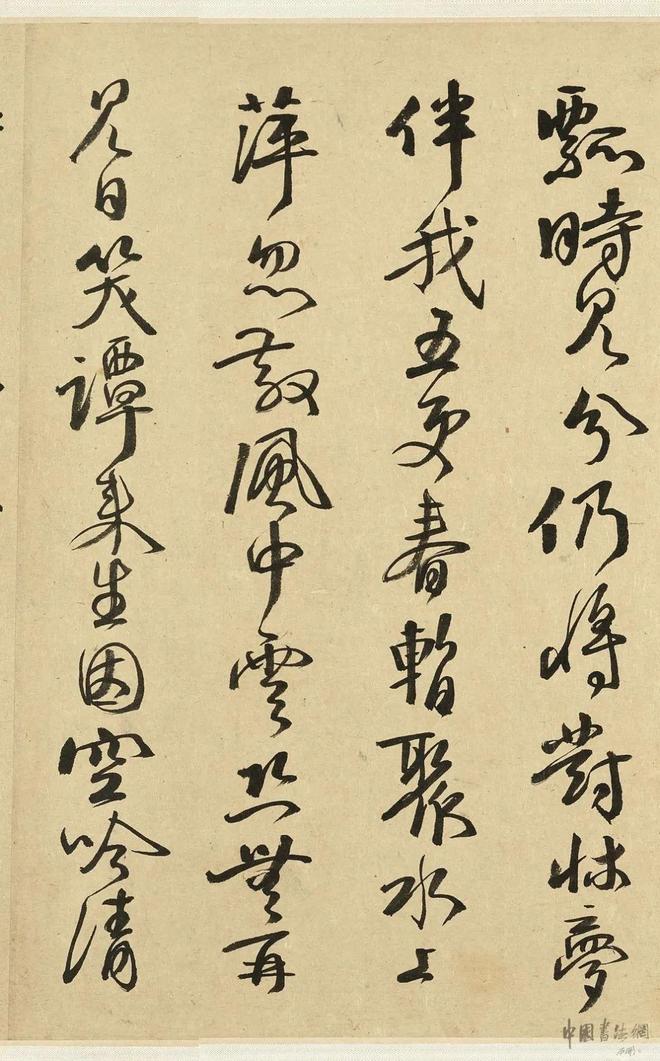 瓢時見分仍將對牀夢
伴我五更春暫聚水上
萍忽散風中雲恐無再
見日笑譚来生因空吟清
中国書法網